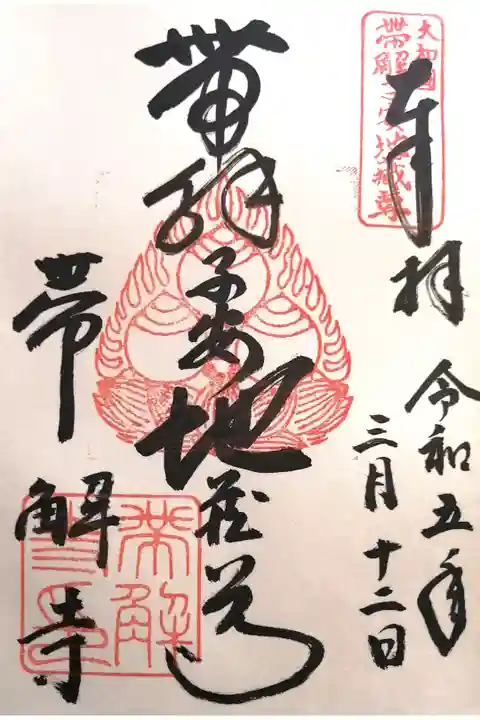 大和國
帯解子安地蔵尊
奉拝
令和五年
三月十二日
帯解子安地蔵尊
帯解寺
帯解
寺印